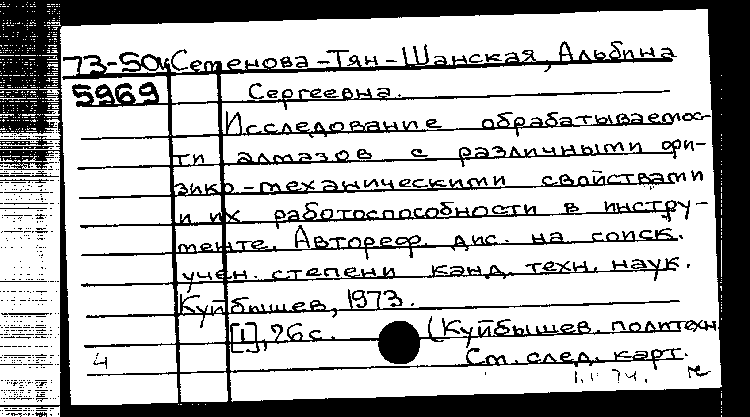 73-504 Семенова-Тян-Шанская, Альбина
5969 Сергеевна.
Исследование обрабатываемос-
ти алмазов с различными фи-
зико-механическими свойствами
и их работоспособности в инстру-
менте. Автореф. дис. на соиск.
учен. степени канд. техн. наук.
Куйбышев, 1973.
[1], 26 с. (Куйбышев. политехн.
4 См. след. карт.